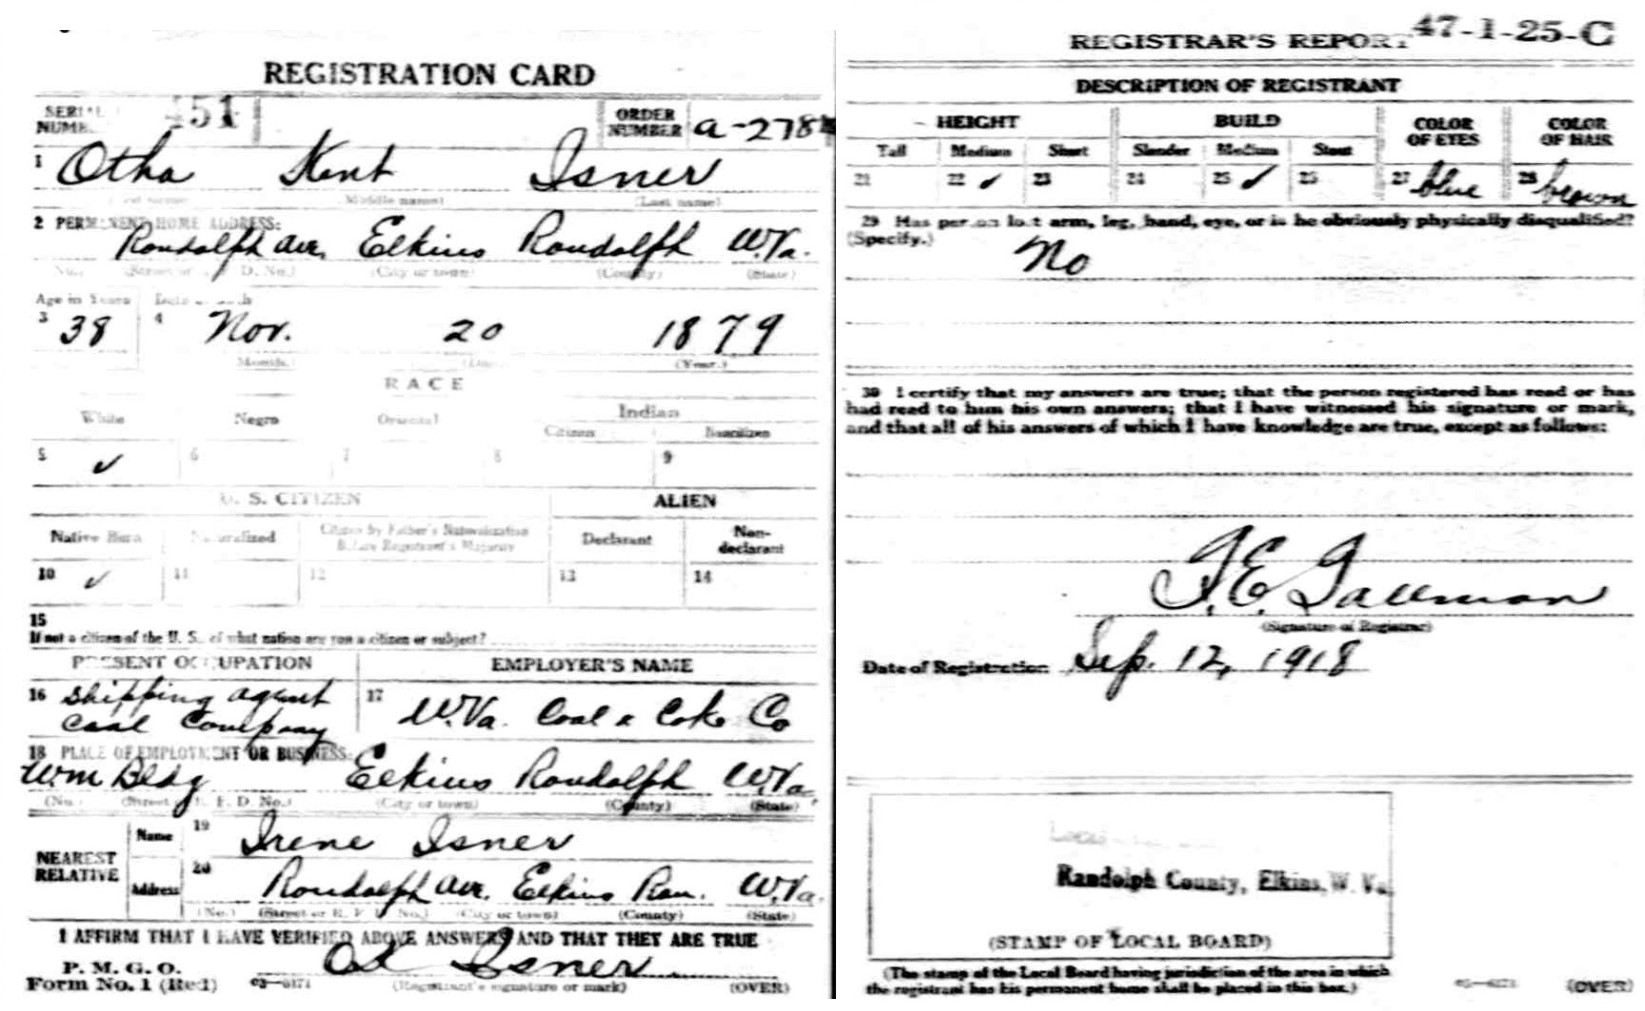 REGISTRATION CARD
SERIAL NUMBER 451 ORDER NUMBER a-278
1 Otha Kent Isner
(First name) (Middle name) (Last name)
2 PERMANENT HOME ADDRESS:
Randolph av. Elkins Randolph W.Va.
(No.) (Street or R. F. D. No.) (City or town) (County) (State)
Age in Years Date of Birth
3 38 4 Nov. 20 1879
(Month.) (Day.) (Year.)
RACE
White Negro Oriental Indian
Citizen Noncitizen
5 ✓ 6 7 8 9
U. S. CITIZEN ALIEN
Native Born Naturalized Citizen by Father's Naturalization Before Registrant's Majority Declarant Non-declarant
10 ✓ 11 12 13 14
15
If not a citizen of the U. S., of what nation are you a citizen or subject?
PRESENT OCCUPATION EMPLOYER'S NAME
16 Shipping agent 17 W.Va. Coal & Coke Co
coal Company
18 PLACE OF EMPLOYMENT OR BUSINESS:
Wm Bldg Elkins Randolph W.Va.
(No.) (Street or R. F. D. No.) (City or town) (County) (State)
NEAREST RELATIVE Name 19 Irene Isner
Address 20 Randolph av. Elkins Ran. W.Va.
(No.) (Street or R. F. D. No.) (City or town) (County) (State)
I AFFIRM THAT I HAVE VERIFIED ABOVE ANSWERS AND THAT THEY ARE TRUE
P. M. G. O.
Form No. 1 (Red) 03—6171 (Registrant's signature or mark) (OVER)
Isner
REGISTRAR'S REPORT 47-1-25-C
DESCRIPTION OF REGISTRANT
HEIGHT BUILD COLOR OF EYES COLOR OF HAIR
Tall Medium Short Slender Medium Stout
21 22 ✓ 23 24 25 ✓ 26 27 blue 28 brown
29 Has person lost arm, leg, hand, eye, or is he obviously physically disqualified?
(Specify.)
No
30 I certify that my answers are true; that the person registered has read or has
had read to him his own answers; that I have witnessed his signature or mark,
and that all of his answers of which I have knowledge are true, except as follows:
(Signature of Registrar)
Date of Registration Sep. 12, 1918
Local
Randolph County, Elkins, W. Va.
(STAMP OF LOCAL BOARD)
(The stamp of the Local Board having jurisdiction of the area in which
the registrant has his permanent home shall be placed in this box.)
03—6171 (OVER)